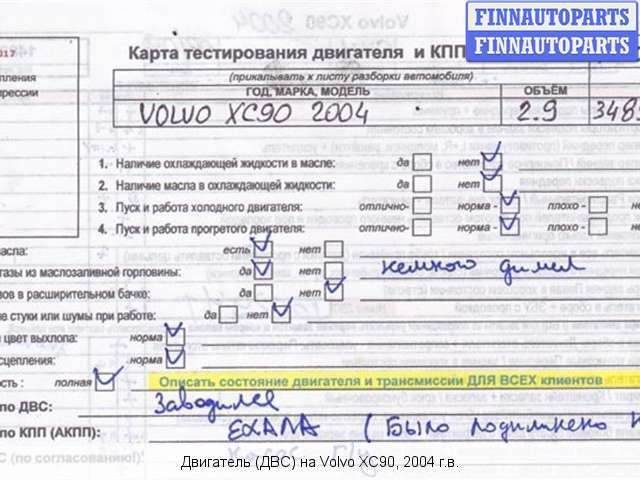 Volvo XC90 2004
FINNAUTOPARTS
FINNAUTOPARTS
2017
Карта тестирования двигателя и КПП
пления
прессии
(прикалывать к листу разборки автомобиля)
ГОД, МАРКА, МОДЕЛЬ ОБЪЁМ
VOLVO XC90 2004 2.9 348
1. Наличие охлаждающей жидкости в масле: да нет
2. Наличие масла в охлаждающей жидкости: да нет
3. Пуск и работа холодного двигателя: отлично- норма - плохо -
4. Пуск и работа прогретого двигателя: отлично- норма - плохо -
асла: есть нет
газы из маслозаливной горловины: да нет немного дымел
зов в расширительном бачке: да нет
ие стуки или шумы при работе: да нет
и цвет выхлопа: норма
сцепления: норма
ость : полная Описать состояние двигателя и трансмиссии ДЛЯ ВСЕХ клиентов
по ДВС: Заводился
по КПП (АКПП): ЕХАЛА (Было подклинено
С (по согласованию!)
Двигатель (ДВС) на Volvo XC90, 2004 г.в.